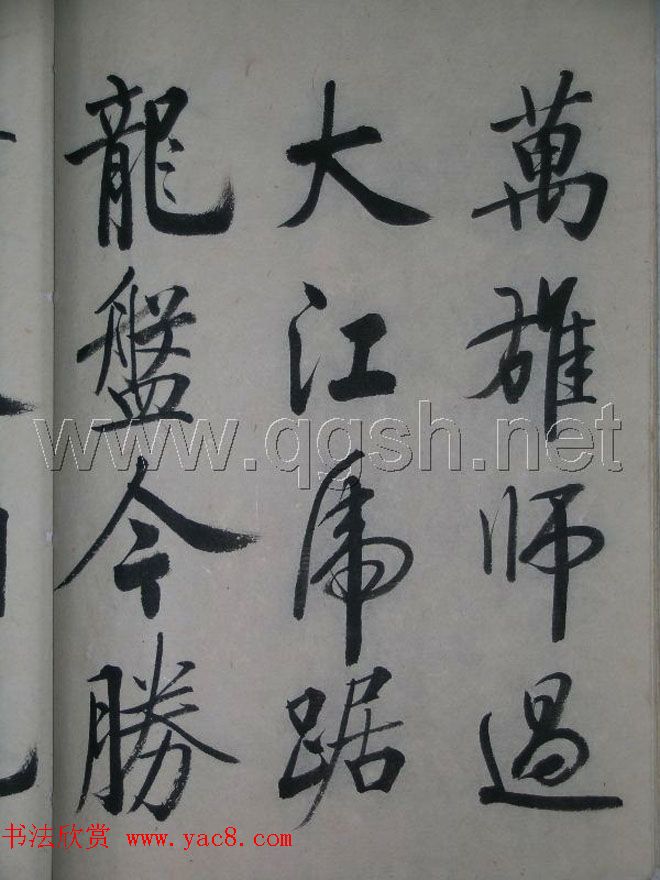 萬雄师過
大江虎踞
龍盤今勝
www.qgsh.net
书法欣赏 www.yac8.com